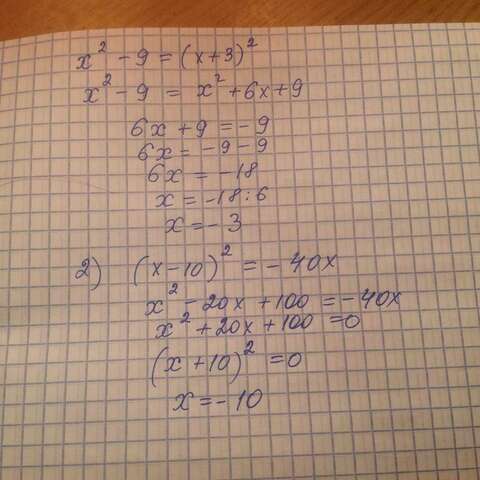 x² - 9 = (x+3)²
x² - 9 = x² + 6x + 9
6x + 9 = - 9
6x = - 9 - 9
6x = - 18
x = - 18 : 6
x = - 3
2) (x - 10)² = - 40x
x² - 20x + 100 = - 40x
x² + 20x + 100 = 0
(x + 10)² = 0
x = - 10